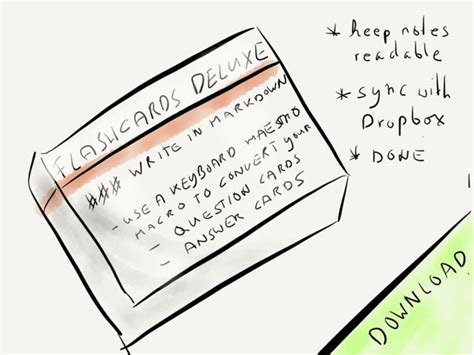 FLASHCARDS DELUXE
### WRITE IN MARKDOWN
- USE A KEYBOARD MAESTRO
MACRO TO CONVERT your
- QUESTION CARDS
- ANSWER CARDS
* keep notes
readable
* sync with
Dropbox
* DONE
DOWNLOAD